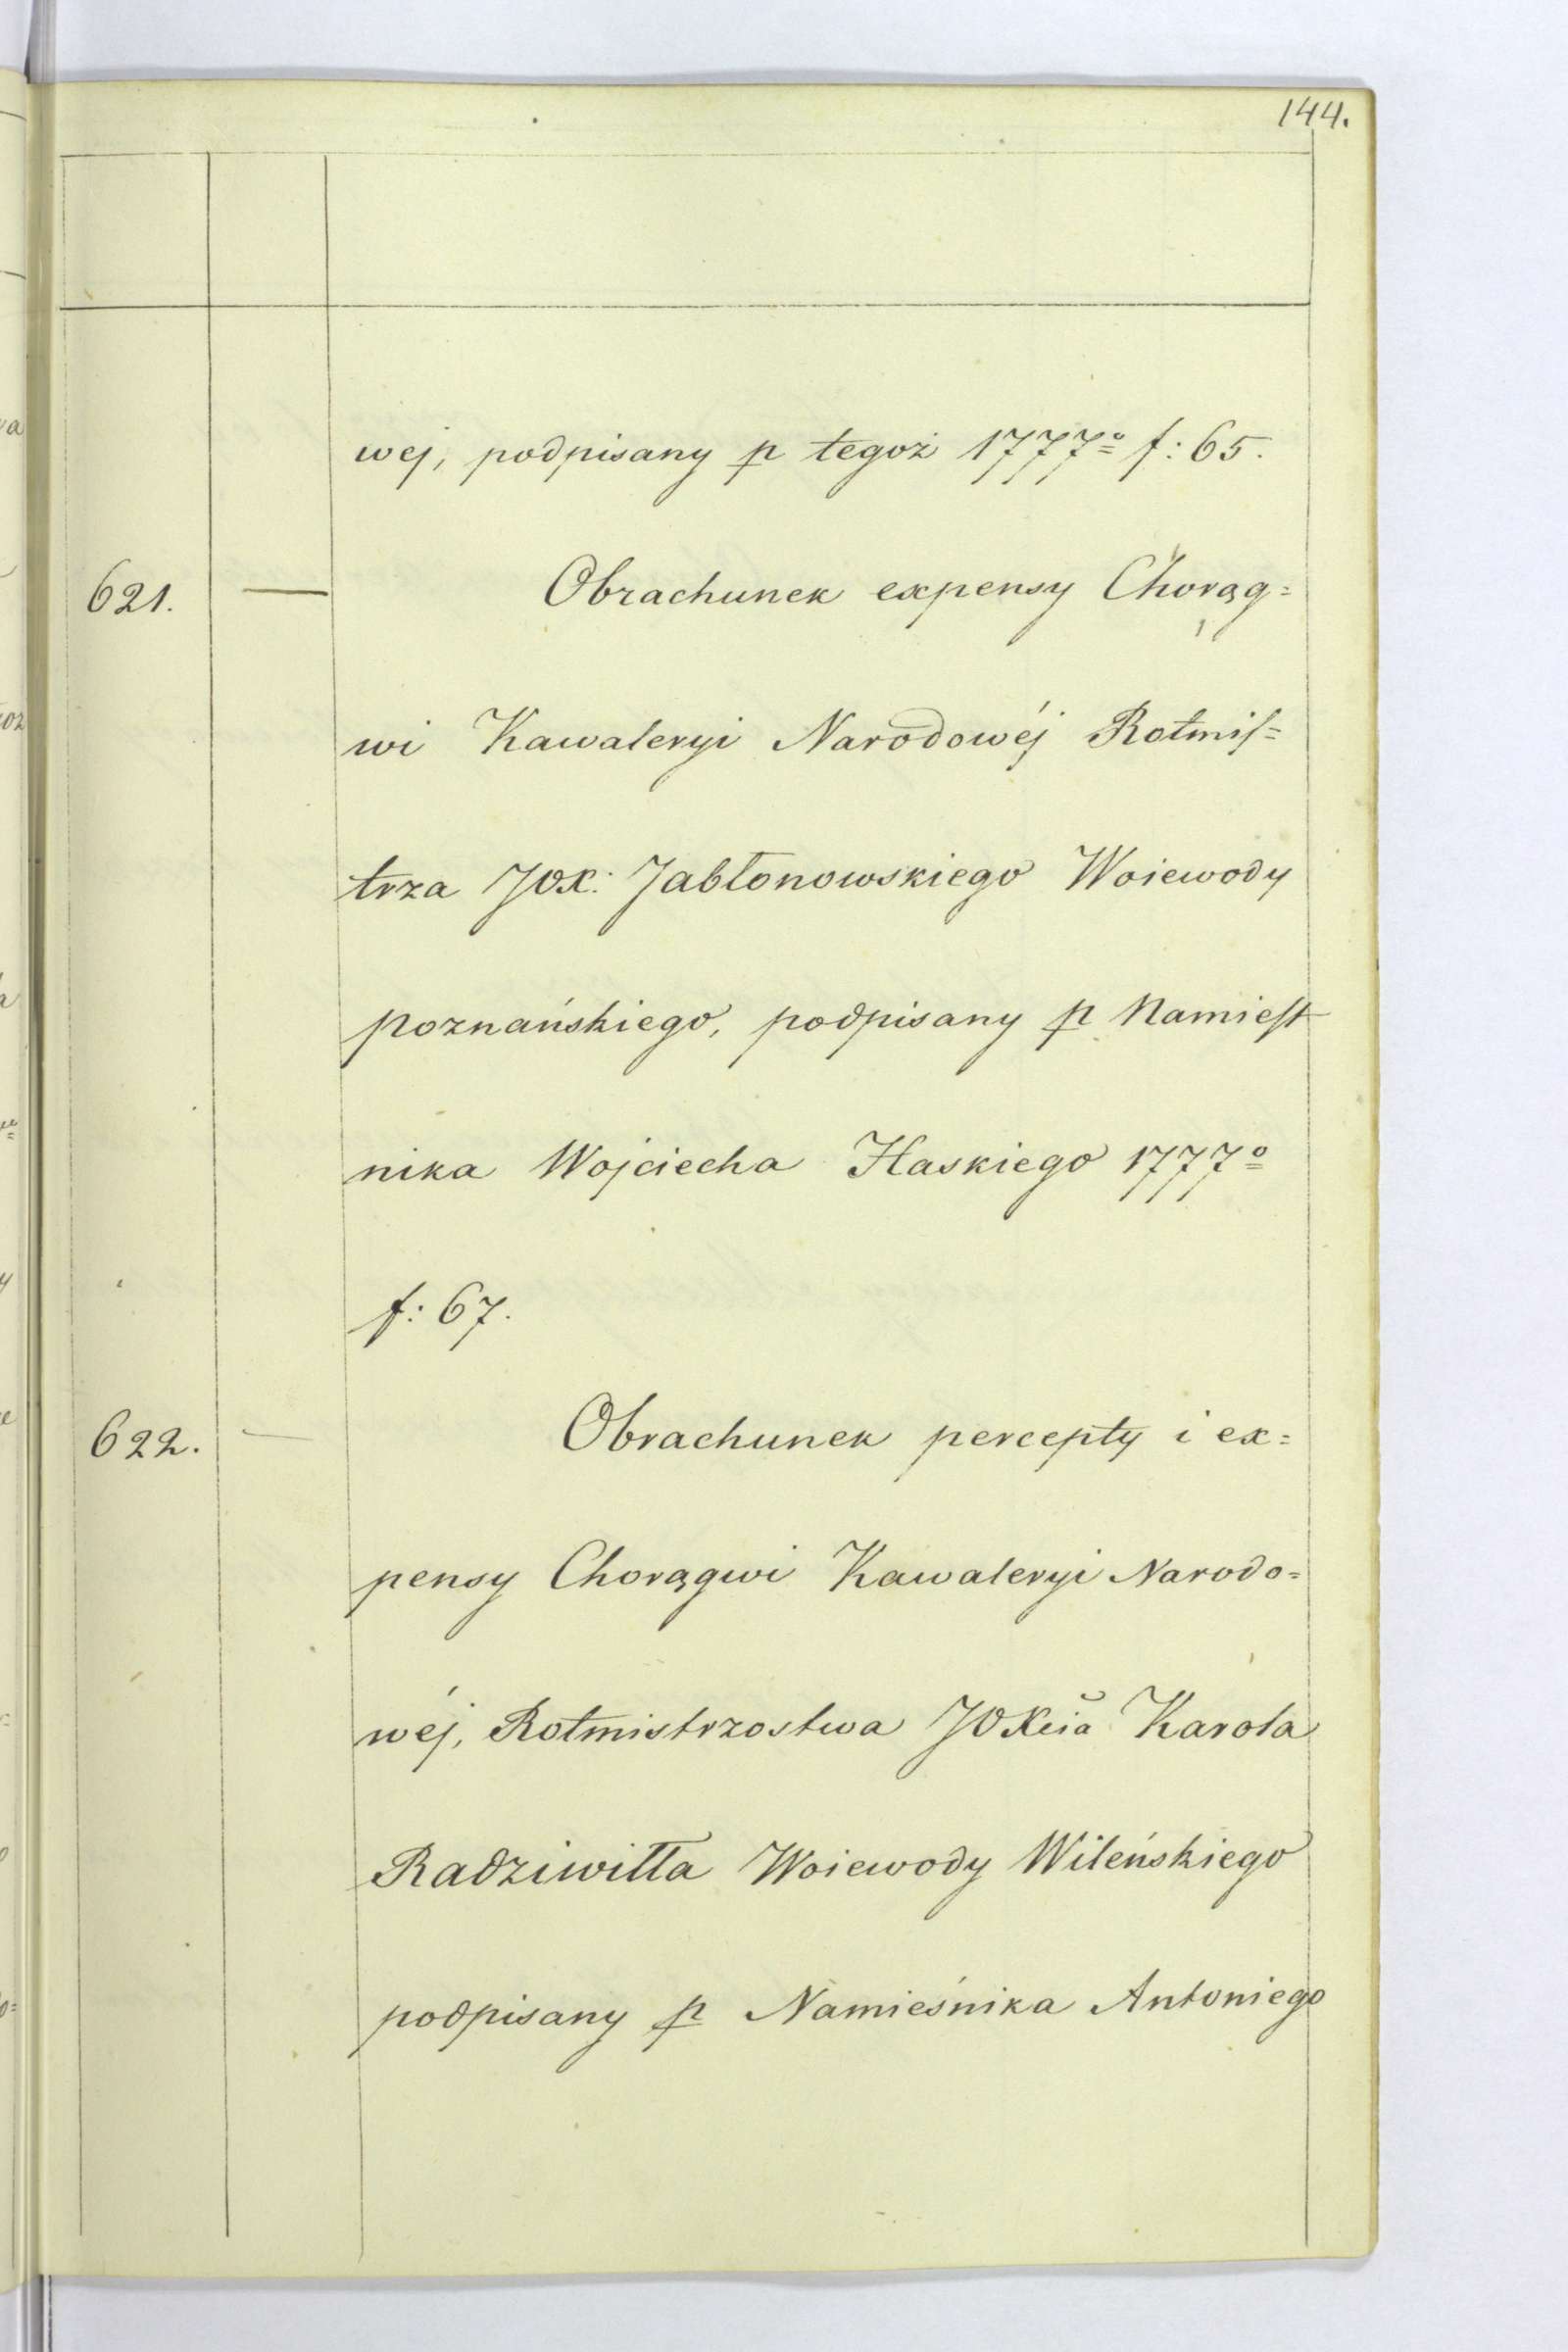 144.
wej, podpisany p tegoż 1777º f: 65.
621. — Obrachunek expensy Chorąg=
wi Kawaleryi Narodowéj Rotmis=
trza JOX: Jabłonowskiego Woiewody
poznańskiego, podpisany p Namiest
nika Wojciecha Haskiego 1777º
f: 67.
622. — Obrachunek percepty i ex=
pensy Chorągwi Kawaleryi Narodo=
wéj, Rotmistrzostwa JOXcia Karola
Radziwiłła Woiewody Wileńskiego
podpisany p Namieśnika Antoniego